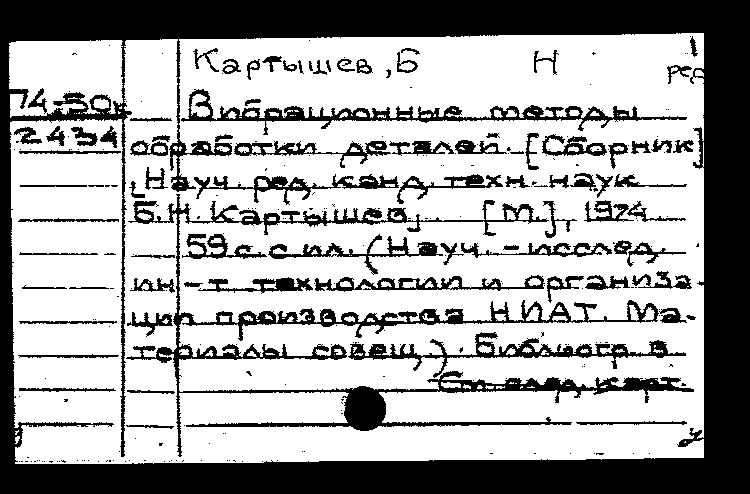 Картышев, Б Н 1
ред
74-50к
2434
Вибрационные методы
обработки деталей. [Сборник]
[Науч. ред. канд. техн. наук
Б.Н. Картышев]. [М.], 1974.
59 с. с ил. (Науч.-исслед.
ин-т технологии и организа-
ции производства НИАТ. Ма-
териалы совещ.). Библиогр. в
См. след. карт.